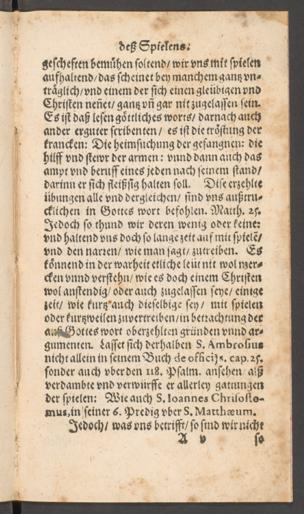 deß Spielens.
geschefften bemühen soltend/ wir vns mit spielen
auffhaltend/ das scheinet bey manchem gantz vn-
träglich/ vnd einem der sich einen gleübigen vnd
Christen neñet/ gantz vñ gar nit zugelassen sein.
Es ist daß lesen göttliches worts/ darnach auch
ander erguter scribenten/ es ist die tröstung der
krancken: Die heimsuchung der gefangen: die
hilff vnd stewr der armen: vnnd dann auch das
ampt vnd beruff eines jeden nach seinem stand/
darinn er sich fleissig halten soll. Dise erzehlte
übungen alle vnd dergleichen/ sind vns außtru-
cklichen in Gottes wort befohlen. Matth. 25.
Jedoch so thund wir deren wenig oder keine:
vnd haltend vns doch so lange zeit auf mit spielē/
vnd den narren/ wie man jagt/ zutreiben. Es
könnend in der warheit etliche leüt nit wol mer-
cken vnnd verstehn/ wie es doch einem Christen
wol anstendig/ oder auch zugelassen seye/ einige
zeit/ wie kurtz auch dieselbige sey/ mit spielen
oder kurtzweilen zuvertreiben/ in betrachtung der
auß Gottes wort oberzehlten gründen vnnd ar-
gumenten. Lasset sich derhalben S. Ambrosius
nicht allein in seinem Buch de officijs. cap. 25.
sonder auch vber den 118. Psalm. ansehen alß
verdambte vnd verwürffe er allerley gattungen
der spielen: Wie auch S. Ioannes Chrisosto-
mus, in seiner 6. Predig vber S. Matthæum.
Jedoch/ was vns betrifft/ so sind wir nicht
A v so